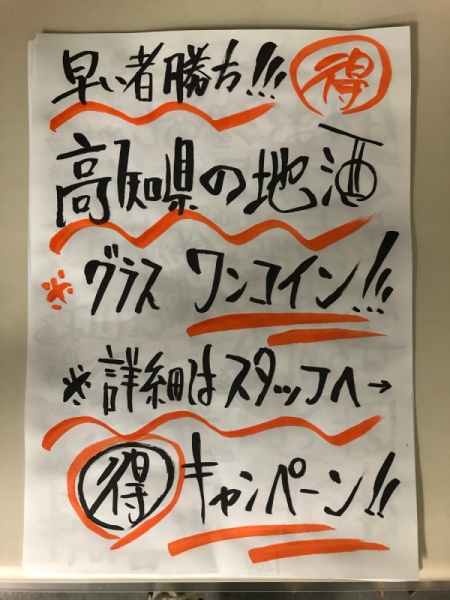 早い者勝ち!!! 得
高知県の地酒
※グラス ワンコイン!!!
※詳細はスタッフへ→
得 キャンペーン!!